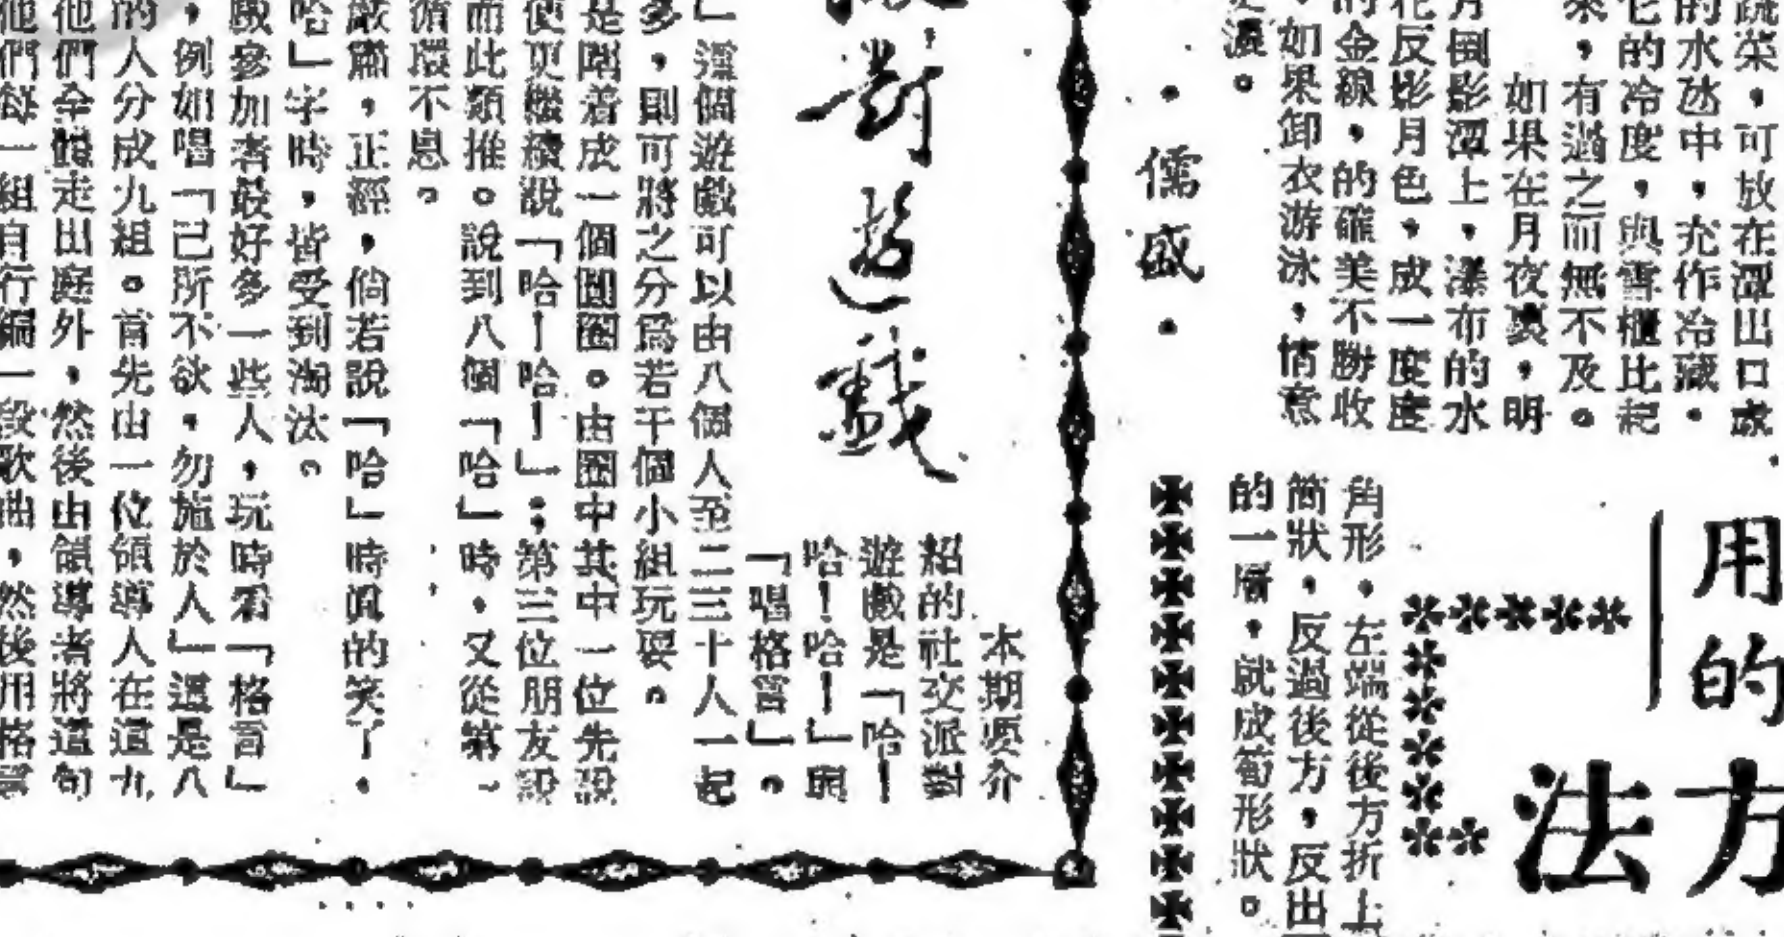 蔬菜，可放在潭出口處
的水氹中，充作冷藏。
它的冷度，與雪櫃比起
來，有過之而無不及。
如果在月夜裏，明
月倒影潭上，瀑布的水
花反影月色，成一度度
的金線，的確美不勝收
。如果卸衣游泳，情意
更濃。
・儒盛・
用的
方法
角形，左端從後方折上
筒狀，反過後方，反出
的一層，就成筍形狀。
派對遊戲
本期要介
紹的社交派對
遊戲是「哈！
哈！哈！」與
「唱格言」。
」這個遊戲可以由八個人至二三十人一起
多，則可將之分爲若干個小組玩耍。
是圍着成一個圓圈。由圈中其中一位先說
便更繼續說「哈！哈！」；第三位朋友說
而此類推。說到八個「哈」時，又從第一
循環不息。
嚴肅，正經，倘若說「哈」時眞的笑了，
哈」字時，皆受到淘汰。
戲參加者最好多一些人，玩時需「格言」
，例如唱「己所不欲，勿施於人」這是八
的人分成九組。首先由一位領導人在這九
他們全體走出廳外，然後由領導者將這句
他們每一組自行編一段歌曲，然後用格言